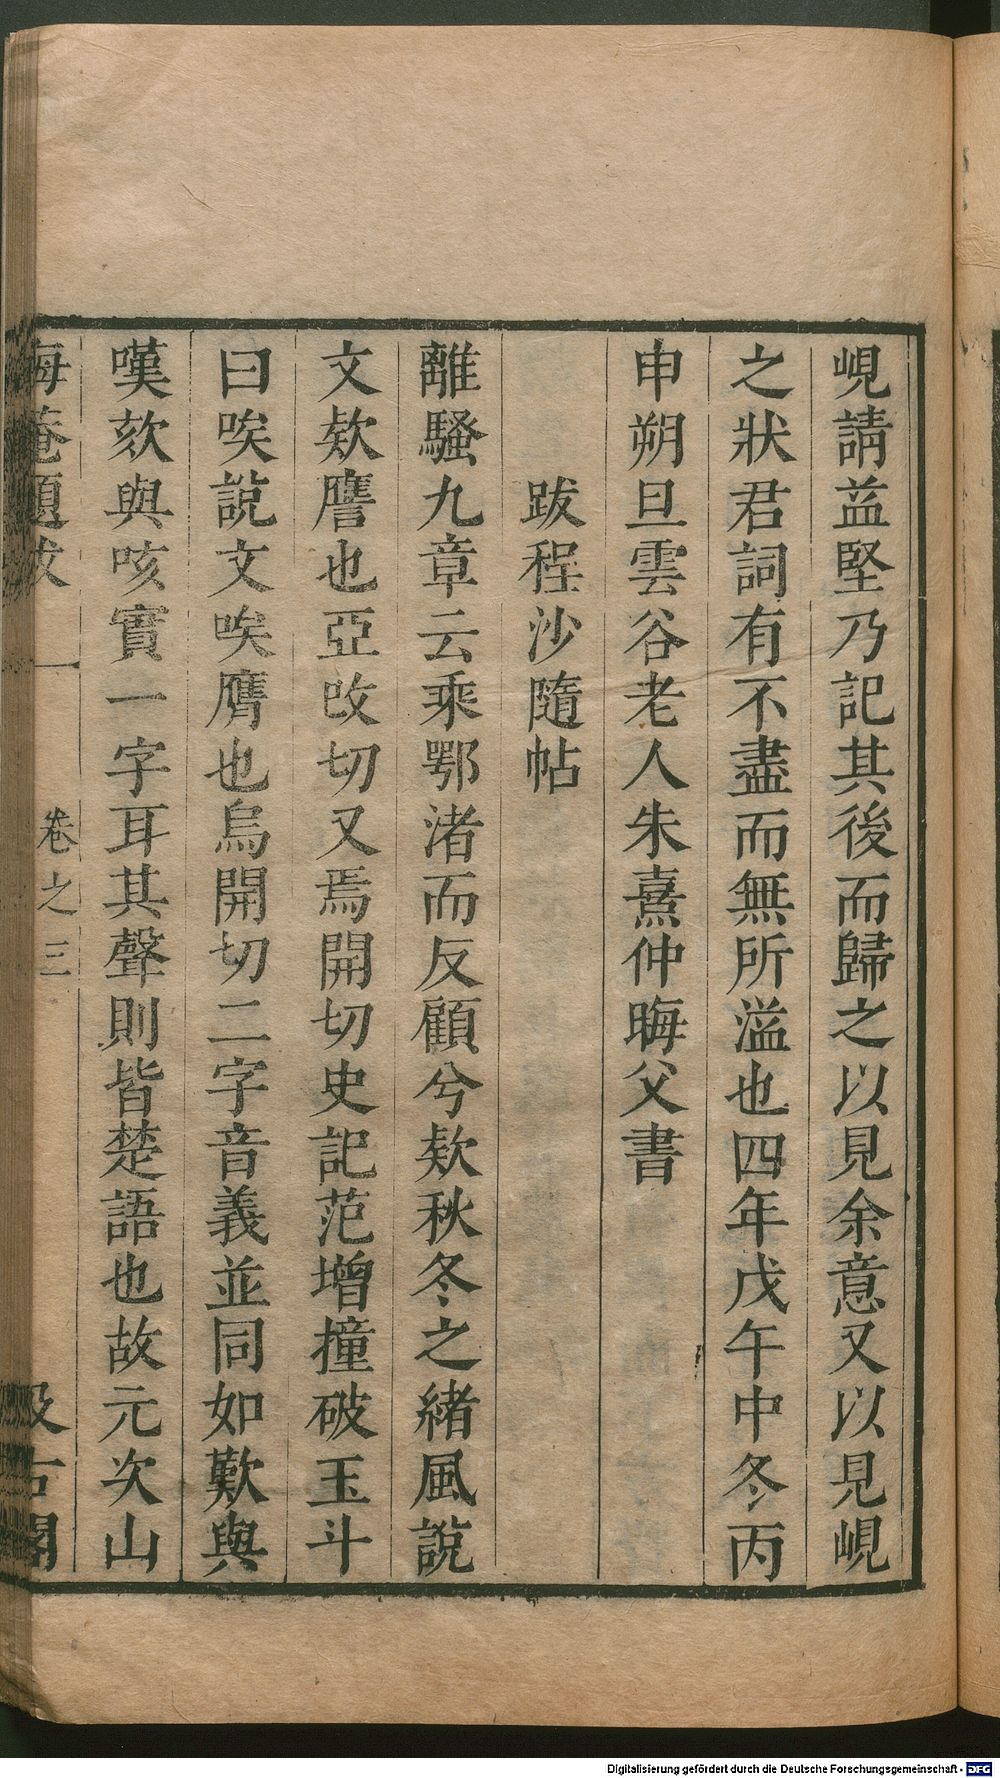 峴請益堅乃記其後而歸之以見余意又以見峴
之狀君詞有不盡而無所溢也四年戊午中冬丙
申朔旦雲谷老人朱熹仲晦父書
跋程沙隨帖
離騷九章云乘鄂渚而反顧兮欸秋冬之緒風說
文欸譍也亞改切又焉開切史記范增撞破玉斗
曰唉說文唉膺也烏開切二字音義並同如歎與
嘆欬與咳實一字耳其聲則皆楚語也故元次山
晦菴題跋 一 卷之三 汲古閣
Digitalisierung gefördert durch die Deutsche Forschungsgemeinschaft - DFG